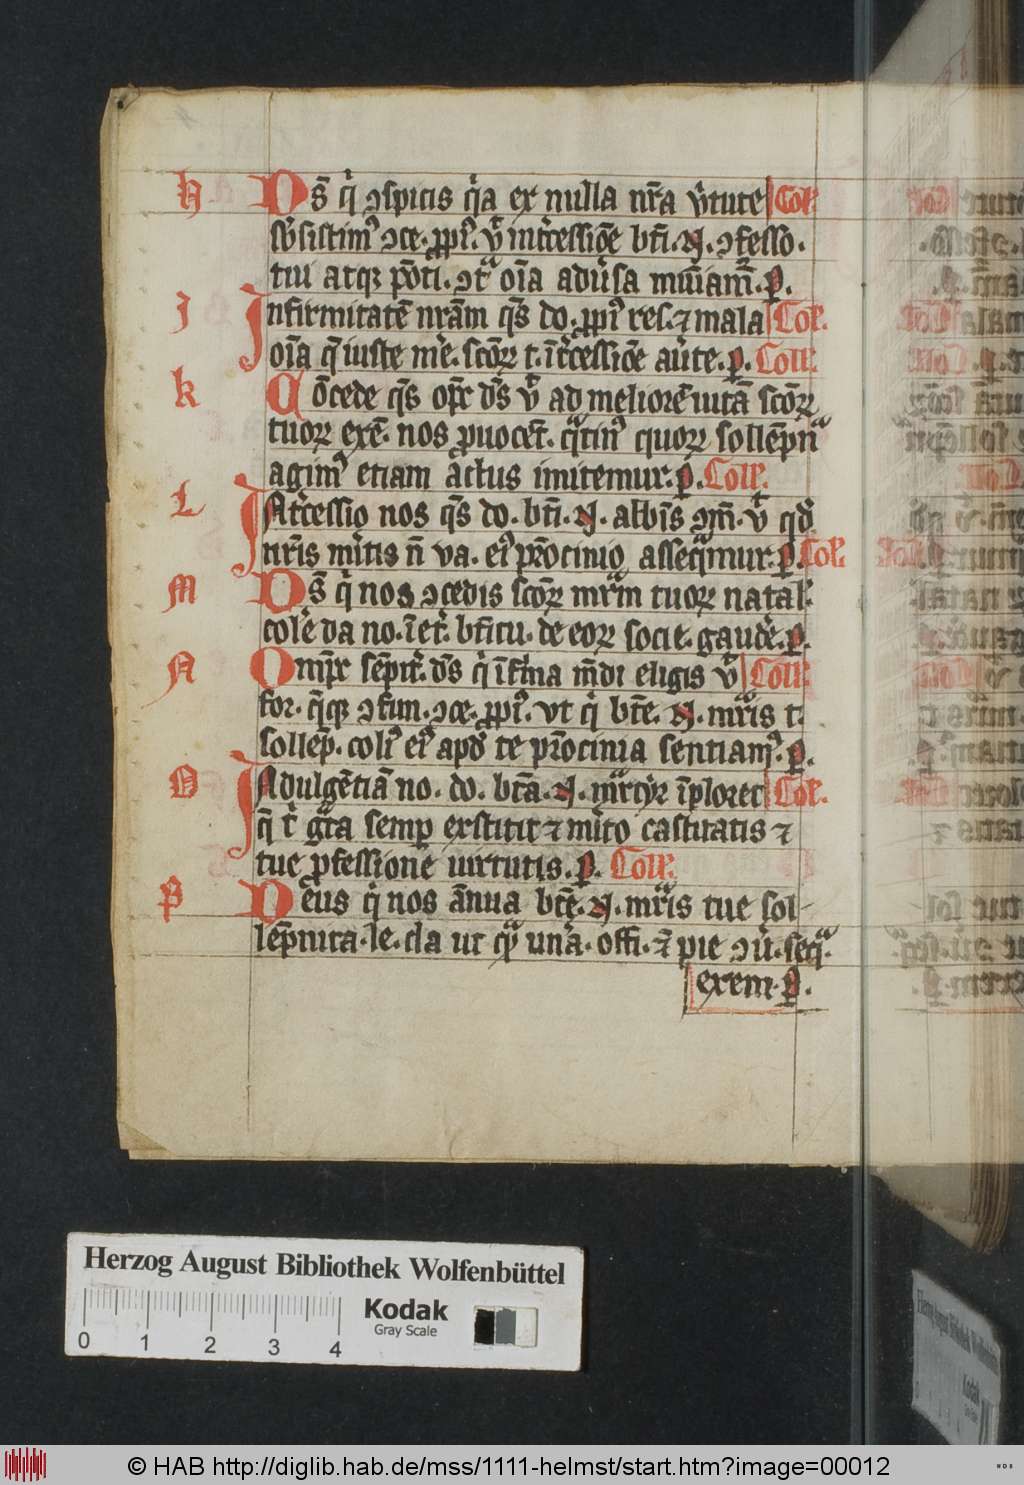 H Ds̄ qi ↄspicis qia ex nulla nr̄a v̓tute Col̓
sb̓sistimꝰ ↄce. ꝓpiꝰ. vt int̓cessiōe bt̄i. N. ↄfesso.
tui atqꝫ pōti. ↄt̓ oīa adu̓sa muniam̄. ꝑ.
J Infirmitatē nrām qs̄ do. ꝓpiꝰ res. ⁊ mala Col̓.
oīa q̄ iuste me̓. scōꝝ t. īt̓cessiōe au̓te. ꝑ. Coll̓.
K Cōcede qs̄ op̄c ds̄ vt ad meliorē uitā scōꝝ
tuoꝝ exē. nos ꝓuocet̄. q̄tinꝰ quoꝝ sollēpn̄
agimꝰ etiam āctus imitemur. ꝑ. Coll̓.
L Int̓cessio nos qs̄ do. bt̄i. N. abbīs ↄm̄. vt qd̓
nr̄is mi̓tis n̄ va. eiꝰ pr̄ocinio asseqmur. ꝑ. Col̓.
M Ds̄ qi nos ↄcedis scōꝝ mr̄m tuoꝝ natal̓.
cole̓ da no. ī et̓. bt̄itu. de eoꝝ societ. gaude̓. ꝑ.
N Omp̄c sēpit̓. ds̄ qi īfi̓ma mūdi eligis vt Coll̓.
for. q̄qꝫ ↄfun. ↄce. ꝓpiꝰ. vt qi bt̄e. N. mr̄is t.
sollēp. coliꝰ eiꝰ apd̓ te pr̄ocinia sentiamꝰ. ꝑ.
O Indulgētiā no. do. bt̄a. N. mr̄tyr īploret Col̓.
q̄ t̓ gr̄ta semꝑ exstitit ⁊ mi̓to castitatis ⁊
tue ꝓfessione uirtutis. ꝑ. Coll̓.
P Deus qi nos ānua bt̄ē. N. mr̄is tue sol
lēpnita. le. da ut qm̄ una̓. offi. ⁊ pie ↄu̓. seq̄.
exem. ꝑ.
Herzog August Bibliothek Wolfenbüttel
0 1 2 3 4
Kodak
Gray Scale
© HAB http://diglib.hab.de/mss/1111-helmst/start.htm?image=00012